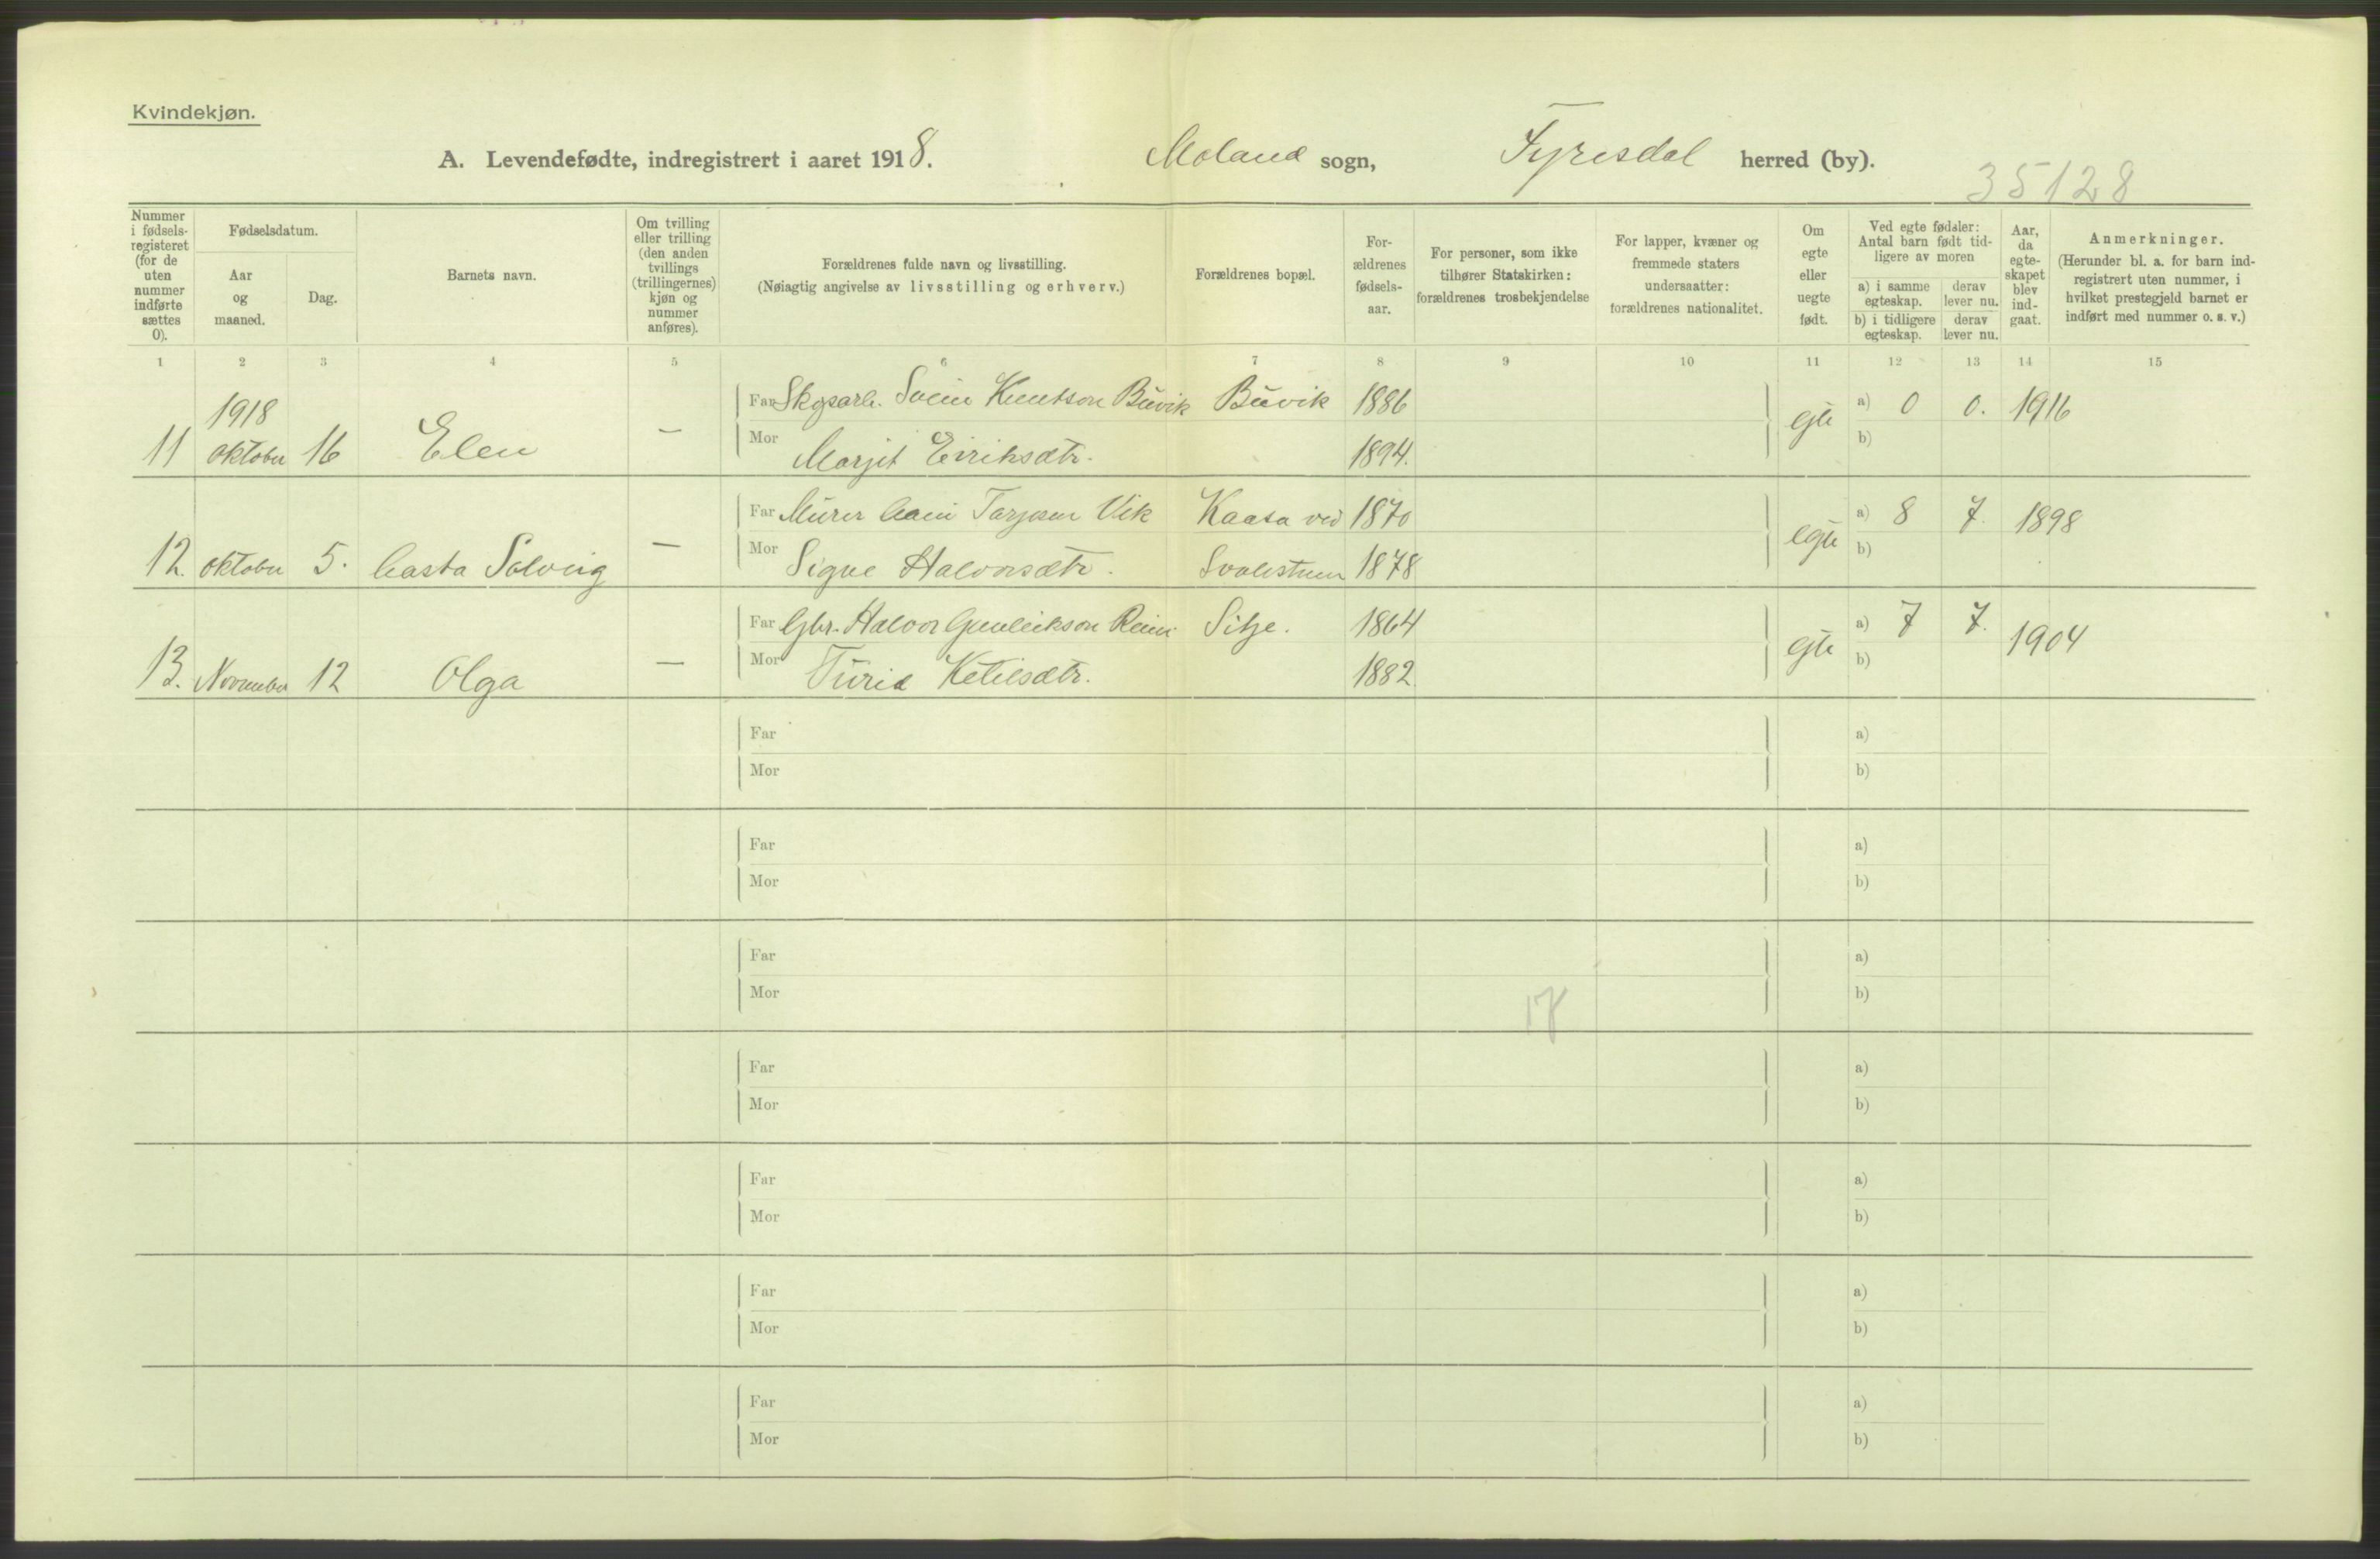 Kvindekjøn.
A. Levendefødte, indregistrert i aaret 1918. Moland sogn, Fyresdal herred (by).
35128
Nummer i fødsels-registeret (for de uten nummer indførte sættes 0).
Fødselsdatum.
Aar og maaned.
Dag.
Barnets navn.
Om tvilling eller trilling (den anden tvillings (trillingernes) kjøn og nummer anføres).
Forældrenes fulde navn og livsstilling.
(Nøiagtig angivelse av livsstilling og erhverv.)
Forældrenes bopæl.
For-ældrenes fødsels-aar.
For personer, som ikke tilhører Statskirken: forældrenes trosbekjendelse
For lapper, kvæner og fremmede staters undersaatter: forældrenes nationalitet.
Om egte eller uegte født.
Ved egte fødsler: Antal barn født tid-ligere av moren
a) i samme egteskap. derav lever nu.
b) i tidligere egteskap. derav lever nu.
Aar, da egte-skapet blev ind-gaat.
Anmerkninger.
(Herunder bl. a. for barn ind-registrert uten nummer, i hvilket prestegjeld barnet er indført med nummer o. s. v.)
1 2 3 4 5 6 7 8 9 10 11 12 13 14 15
1918
Far Skogsarb. Svein Knutson Buvik Buvik 1886 a) 0 0. 1916
11 Oktober 16 Elen — Mor Marjit Eiriksdtr. 1894. egte b)
Far Murer Tarjesen Vik Kaasa ved 1870 a) 8 7. 1898
12. Oktober 5. Aasta Solveig — Mor Signe Halvorsdtr. 1878 egte b)
Far Gbr. Halvor Gunleikson Sitje. 1864 a) 7 7. 1904
13. November 12 Olga — Mor Turid Ketilsdtr. 1882. egte b)
Far a)
Mor b)
Far a)
Mor b)
Far a)
Mor b)
17
Far a)
Mor b)
Far a)
Mor b)
Far a)
Mor b)
Far a)
Mor b)